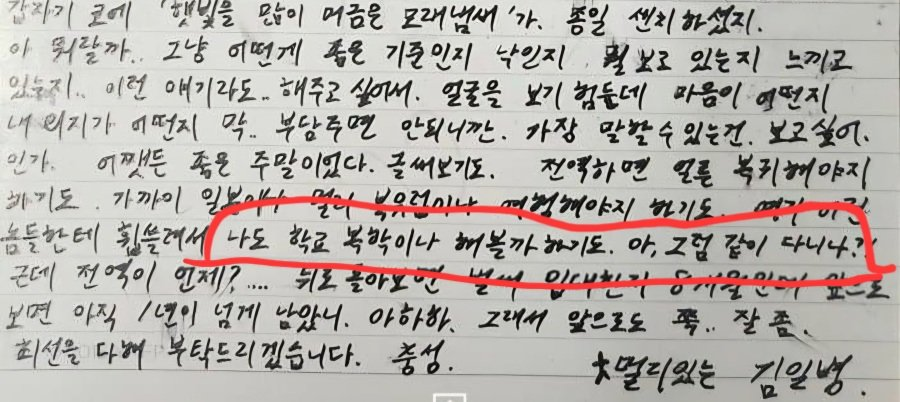 갑자기 코에 '햇빛을 많이 머금은 모래냄새'가. 종일 센티하셨지.
아 뭐랄까.. 그냥 어떤게 좋은 기준인지 낙인지 뭘 보고 있는지 느끼고
있는지.. 이런 얘기라도.. 해주고 싶어서. 얼굴을 보기 힘든데 마음이 어떤지
내 의지가 어떤지 막.. 부담주면 안되니깐. 가장 말할 수 있는건. 보고싶어.
인가. 어쨋든 좋은 주말이었다. 글써보기도. 전역하면 얼른 복귀해야지
하기도. 가까이 일본이나 멀리 북유럽이나 여행해야지 하기도.
놈들한테 휩쓸려서 나도 학교 복학이나 해볼까 하기도. 아, 그럼 같이 다니나?!
근데 전역이 언제?.... 뒤로 돌아보면 벌써 입대한지 앞으로
보면 아직 1년이 넘게 남았니. 아하하. 그래서 앞으로도 쭉.. 잘 좀.
최선을 다해 부탁드리겠습니다. 충성.
멀리있는 김일병.